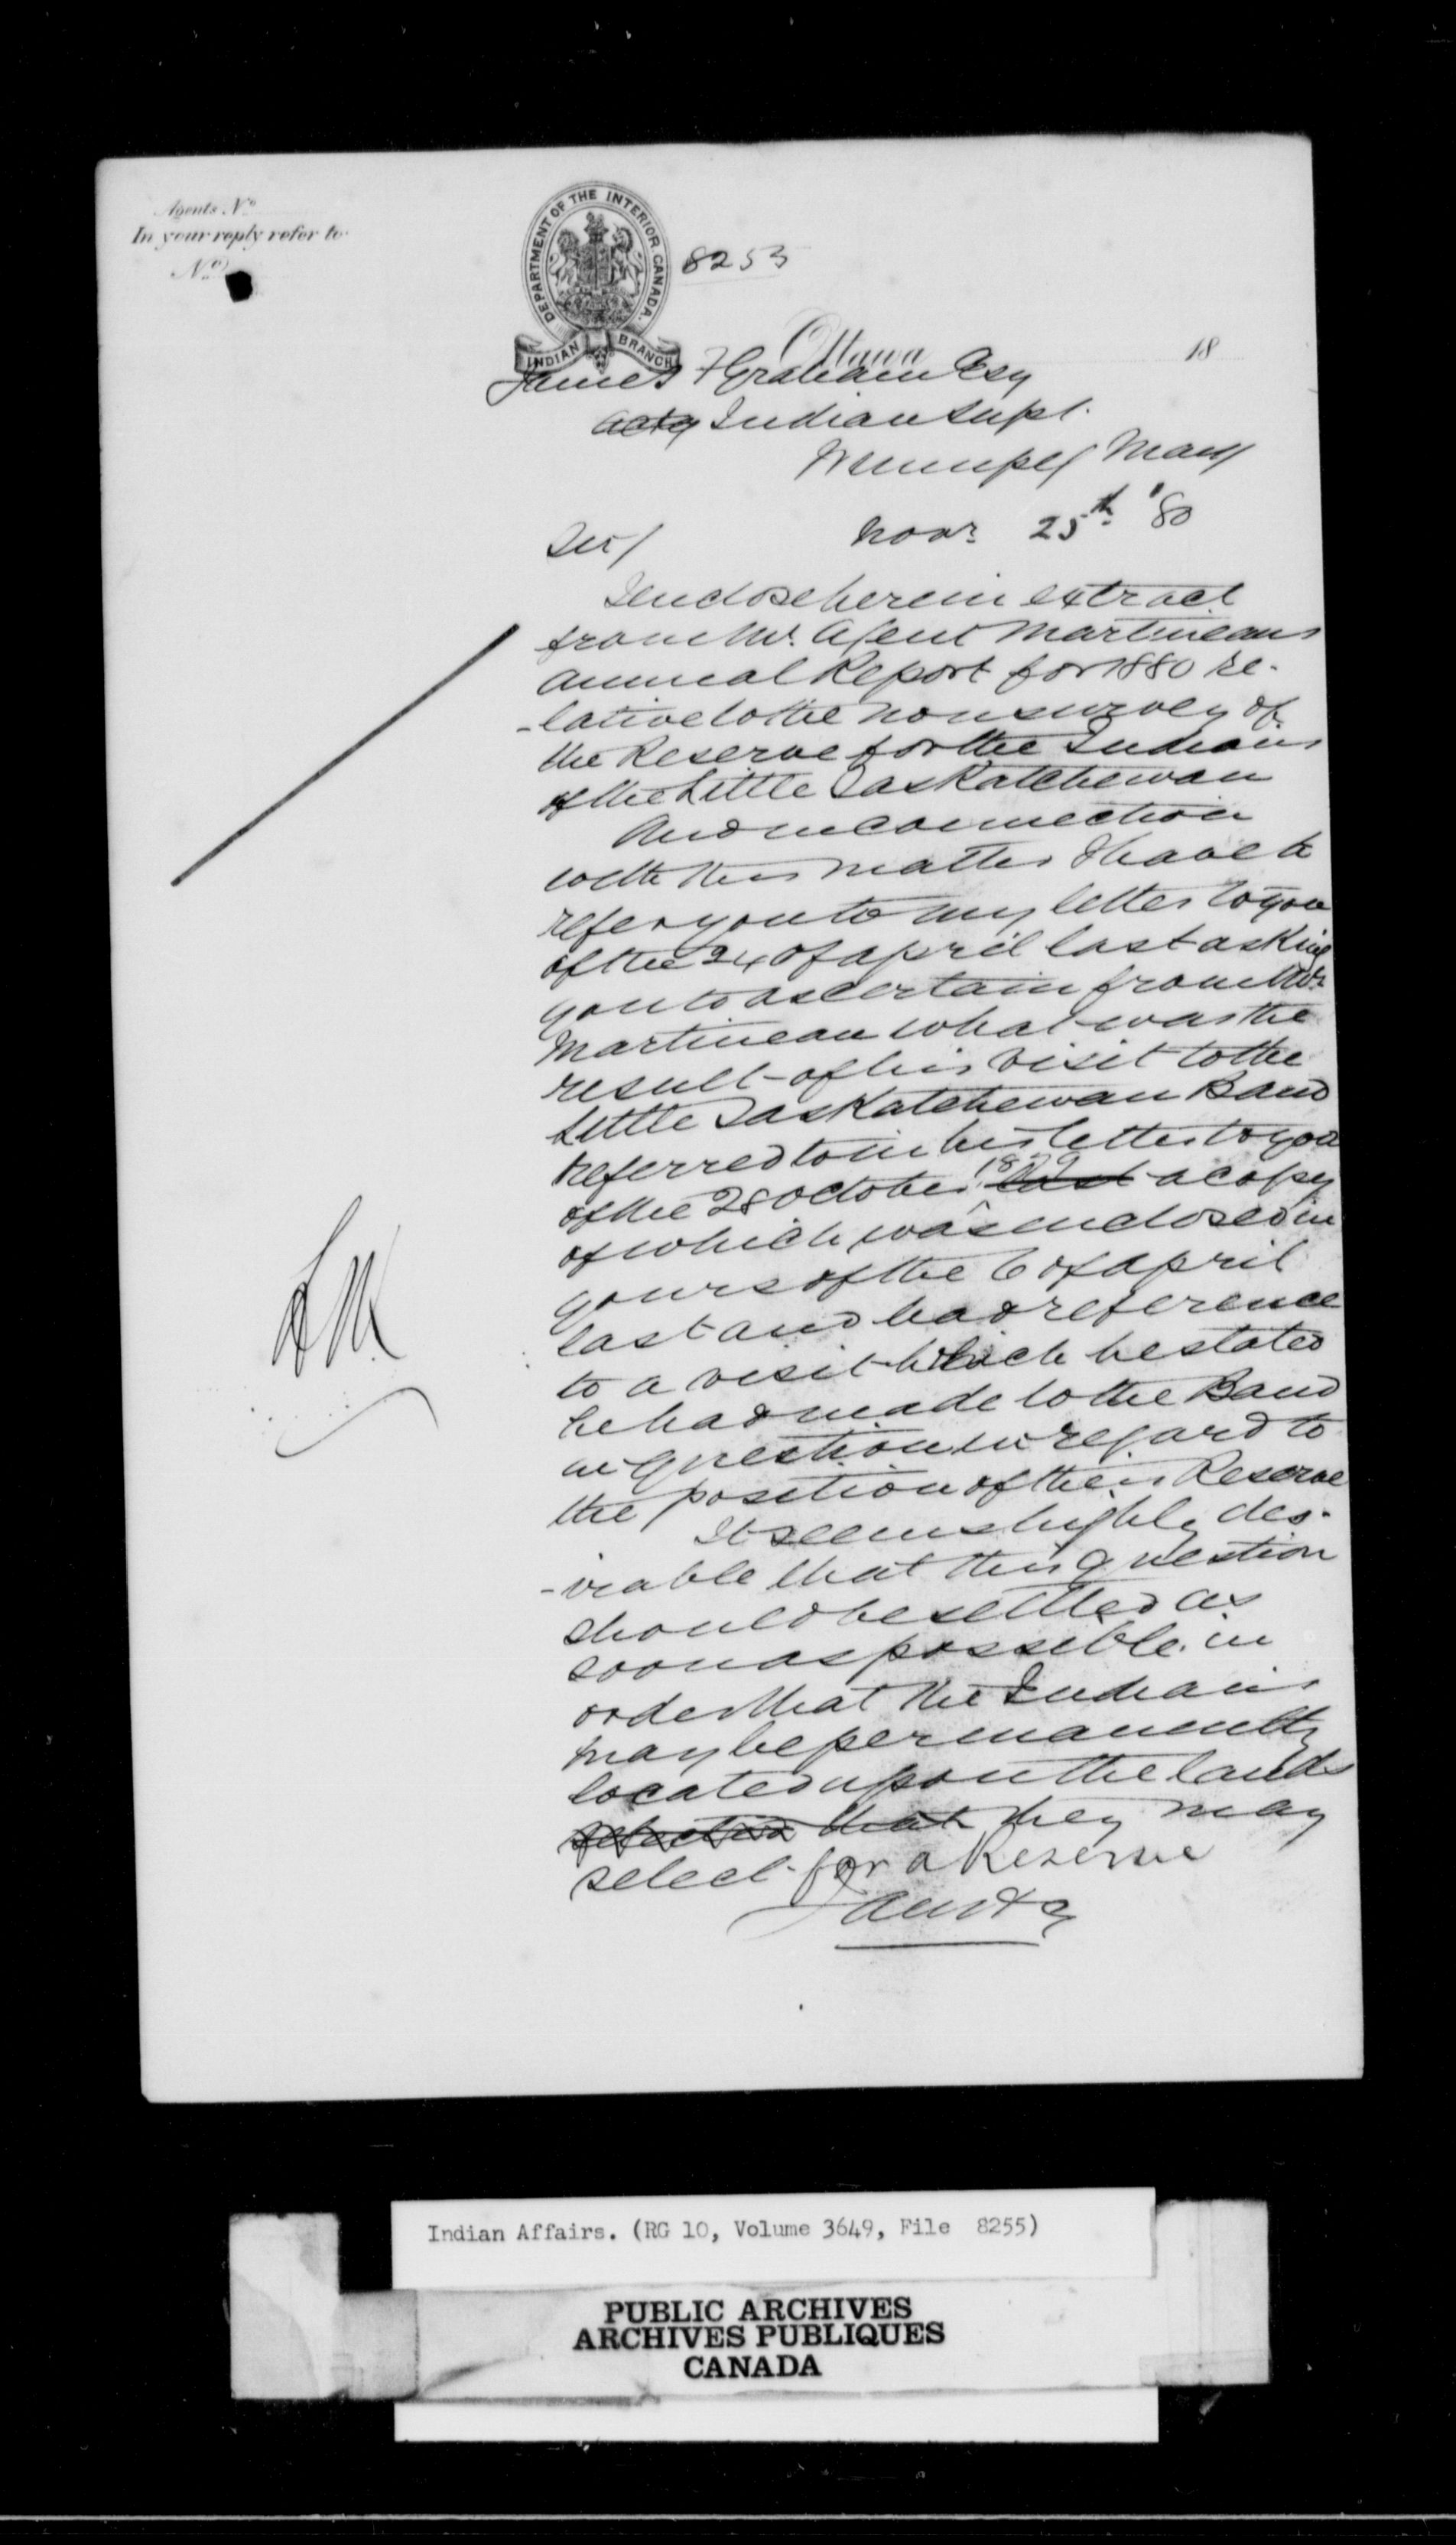 Agents No
In your reply refer to
No
DEPARTMENT OF THE INTERIOR CANADA.
INDIAN BRANCH
8255
Ottawa 18
James F Graham Esq
actg Indian Supt.
Winnipeg Man
Novr. 25th '80
Sir/
I enclose herein extract
from Mr. Agent Martineau's
Annual Report for 1880 re-
-lative to the non survey of
the Reserve for the Indians
of the Little Saskatchewan
And in connection
with this matter I have to
refer you to my letter to you
of the 24 of April last asking
you to ascertain from Mr.
Martineau what was the
result of his visit to the
Little Saskatchewan Band
referred to in his letter to you
of the 28 October 1879 last a copy
of which was enclosed in
yours of the 6 of April
last and had reference
to a visit which he stated
he had made to the Band
in question in regard to
the position of their Reserve
It seems highly des-
-irable that this question
should be settled as
soon as possible in
order that the Indians
may be permanently
located upon the lands
selected that they may
select for a Reserve
Indian Affairs. (RG 10, Volume 3649, File 8255)
PUBLIC ARCHIVES
ARCHIVES PUBLIQUES
CANADA